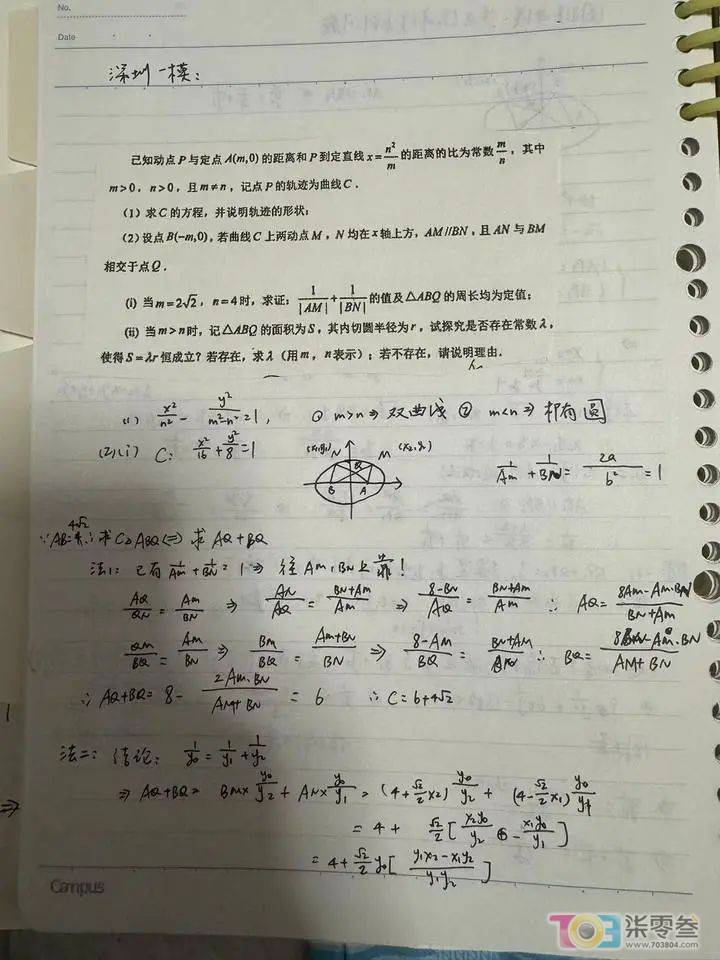 No.
Date
深圳一模:
已知动点 P 与定点 A(m,0) 的距离和 P 到定直线 x = n²/m 的距离的比为常数 m/n，其中
m>0，n>0，且 m≠n，记点 P 的轨迹为曲线 C．
（1）求 C 的方程，并说明轨迹的形状；
（2）设点 B(-m,0)，若曲线 C 上两动点 M，N 均在 x 轴上方，AM//BN，且 AN 与 BM
相交于点 Q．
(i) 当 m=2√2，n=4 时，求证：1/|AM| + 1/|BN| 的值及△ABQ 的周长均为定值；
(ii) 当 m>n 时，记△ABQ 的面积为 S，其内切圆半径为 r，试探究是否存在常数 λ，
使得 S=λr 恒成立？若存在，求 λ（用 m，n 表示）；若不存在，请说明理由．
(1) x²/n² - y²/(m²-n²) = 1, ① m>n ⇒ 双曲线 ② m<n ⇒ 椭圆
(2)(i) C: x²/16 + y²/8 = 1
(x₁,y₁) N M (x₂,y₂)
Q
B A
1/AM + 1/BN = 2a/b² = 1
4√2
∵AB= ∴求C△ABQ ⇔ 求 AQ+BQ
法1: 已有 1/AM + 1/BN = 1 ⇒ 往 AM, BN 上靠!
AQ/QN = AM/BN ⇒ AN/AQ = (BN+AM)/AM ⇒ (8-BN)/AQ = (BN+AM)/AM ∴ AQ = (8AM-AM·BN)/(BN+AM)
QM/BQ = AM/BN ⇒ BM/BQ = (AM+BN)/BN ⇒ (8-AM)/BQ = (BN+AM)/BN ∴ BQ = (8BN-AM·BN)/(AM+BN)
∴ AQ+BQ = 8 - 2AM·BN/(AM+BN) = 6 ∴ C=6+4√2
法二: 结论: 1/y₀ = 1/y₁ + 1/y₂
⇒ AQ+BQ = BM× y₀/y₂ + AN× y₀/y₁ = (4+√2/2 x₂) y₀/y₂ + (4-√2/2 x₁) y₀/y₁
= 4 + √2/2 [ x₂y₀/y₂ - x₁y₀/y₁ ]
= 4+ √2/2 y₀ [ (y₁x₂-x₁y₂)/(y₁y₂) ]
Campus
703 柒零叁
www.703804.com